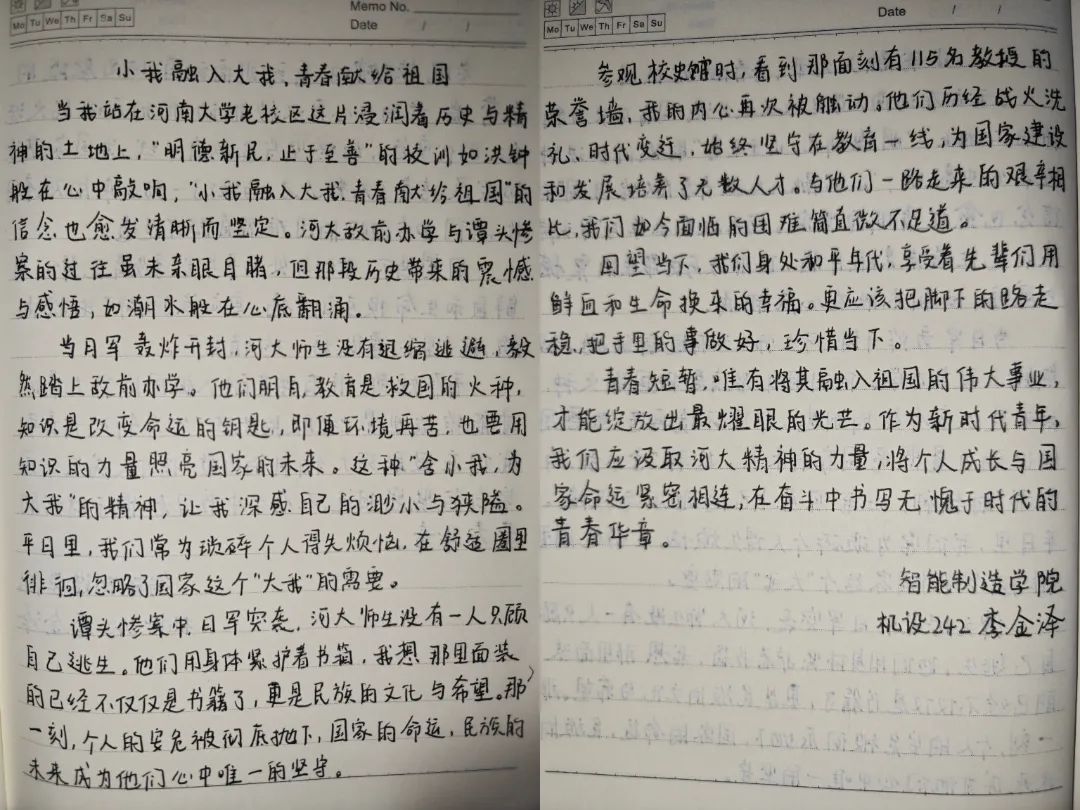 Memo No.
Mo Tu We Th Fr Sa Su
Date / /
小我融入大我、青春献给祖国
当我站在河南大学老校区这片浸润着历史与精
神的土地上，“明德新民，止于至善”的校训如洪钟
般在心中敲响，“小我融入大我、青春献给祖国”的
信念也愈发清晰而坚定。河大敌前办学与谭头惨
案的过往虽未亲眼目睹，但那段历史带来的震憾
与感悟，如潮水般在心底翻涌。
当日军轰炸开封，河大师生没有退缩逃避，毅
然踏上敌前办学。他们明白，教育是救国的火种，
知识是改变命运的钥匙，即便环境再苦，也要用
知识的力量照亮国家的未来。这种“舍小我，为
大我”的精神，让我深感自己的渺小与狭隘。
平日里，我们常为琐碎个人得失烦恼，在舒适圈里
徘徊，忽略了国家这个“大我”的需要。
谭头惨案中，日军突袭，河大师生没有一人只顾
自己逃生。他们用身体紧护着书箱，我想那里面装
的已经不仅仅是书籍了，更是民族的文化与希望。那
一刻，个人的安危被彻底抛下，国家的命运，民族的
未来成为他们心中唯一的坚守。
Mo Tu We Th Fr Sa Su
Date / /
参观校史馆时，看到那面刻有115名教授的
荣誉墙，我的内心再次被触动。他们历经战火洗
礼、时代变迁，始终坚守在教育一线，为国家建设
和发展培养了无数人才。与他们一路走来的艰辛相
比，我们如今面临的困难简直微不足道。
回望当下，我们身处和平年代，享受着先辈们用
鲜血和生命换来的幸福。更应该把脚下的路走
稳，把手里的事做好，珍惜当下。
青春短暂，唯有将其融入祖国的伟大事业，
才能绽放出最耀眼的光芒。作为新时代青年，
我们应汲取河大精神的力量，将个人成长与国
家命运紧密相连，在奋斗中书写无愧于时代的
青春华章。
智能制造学院
机设242 李金泽